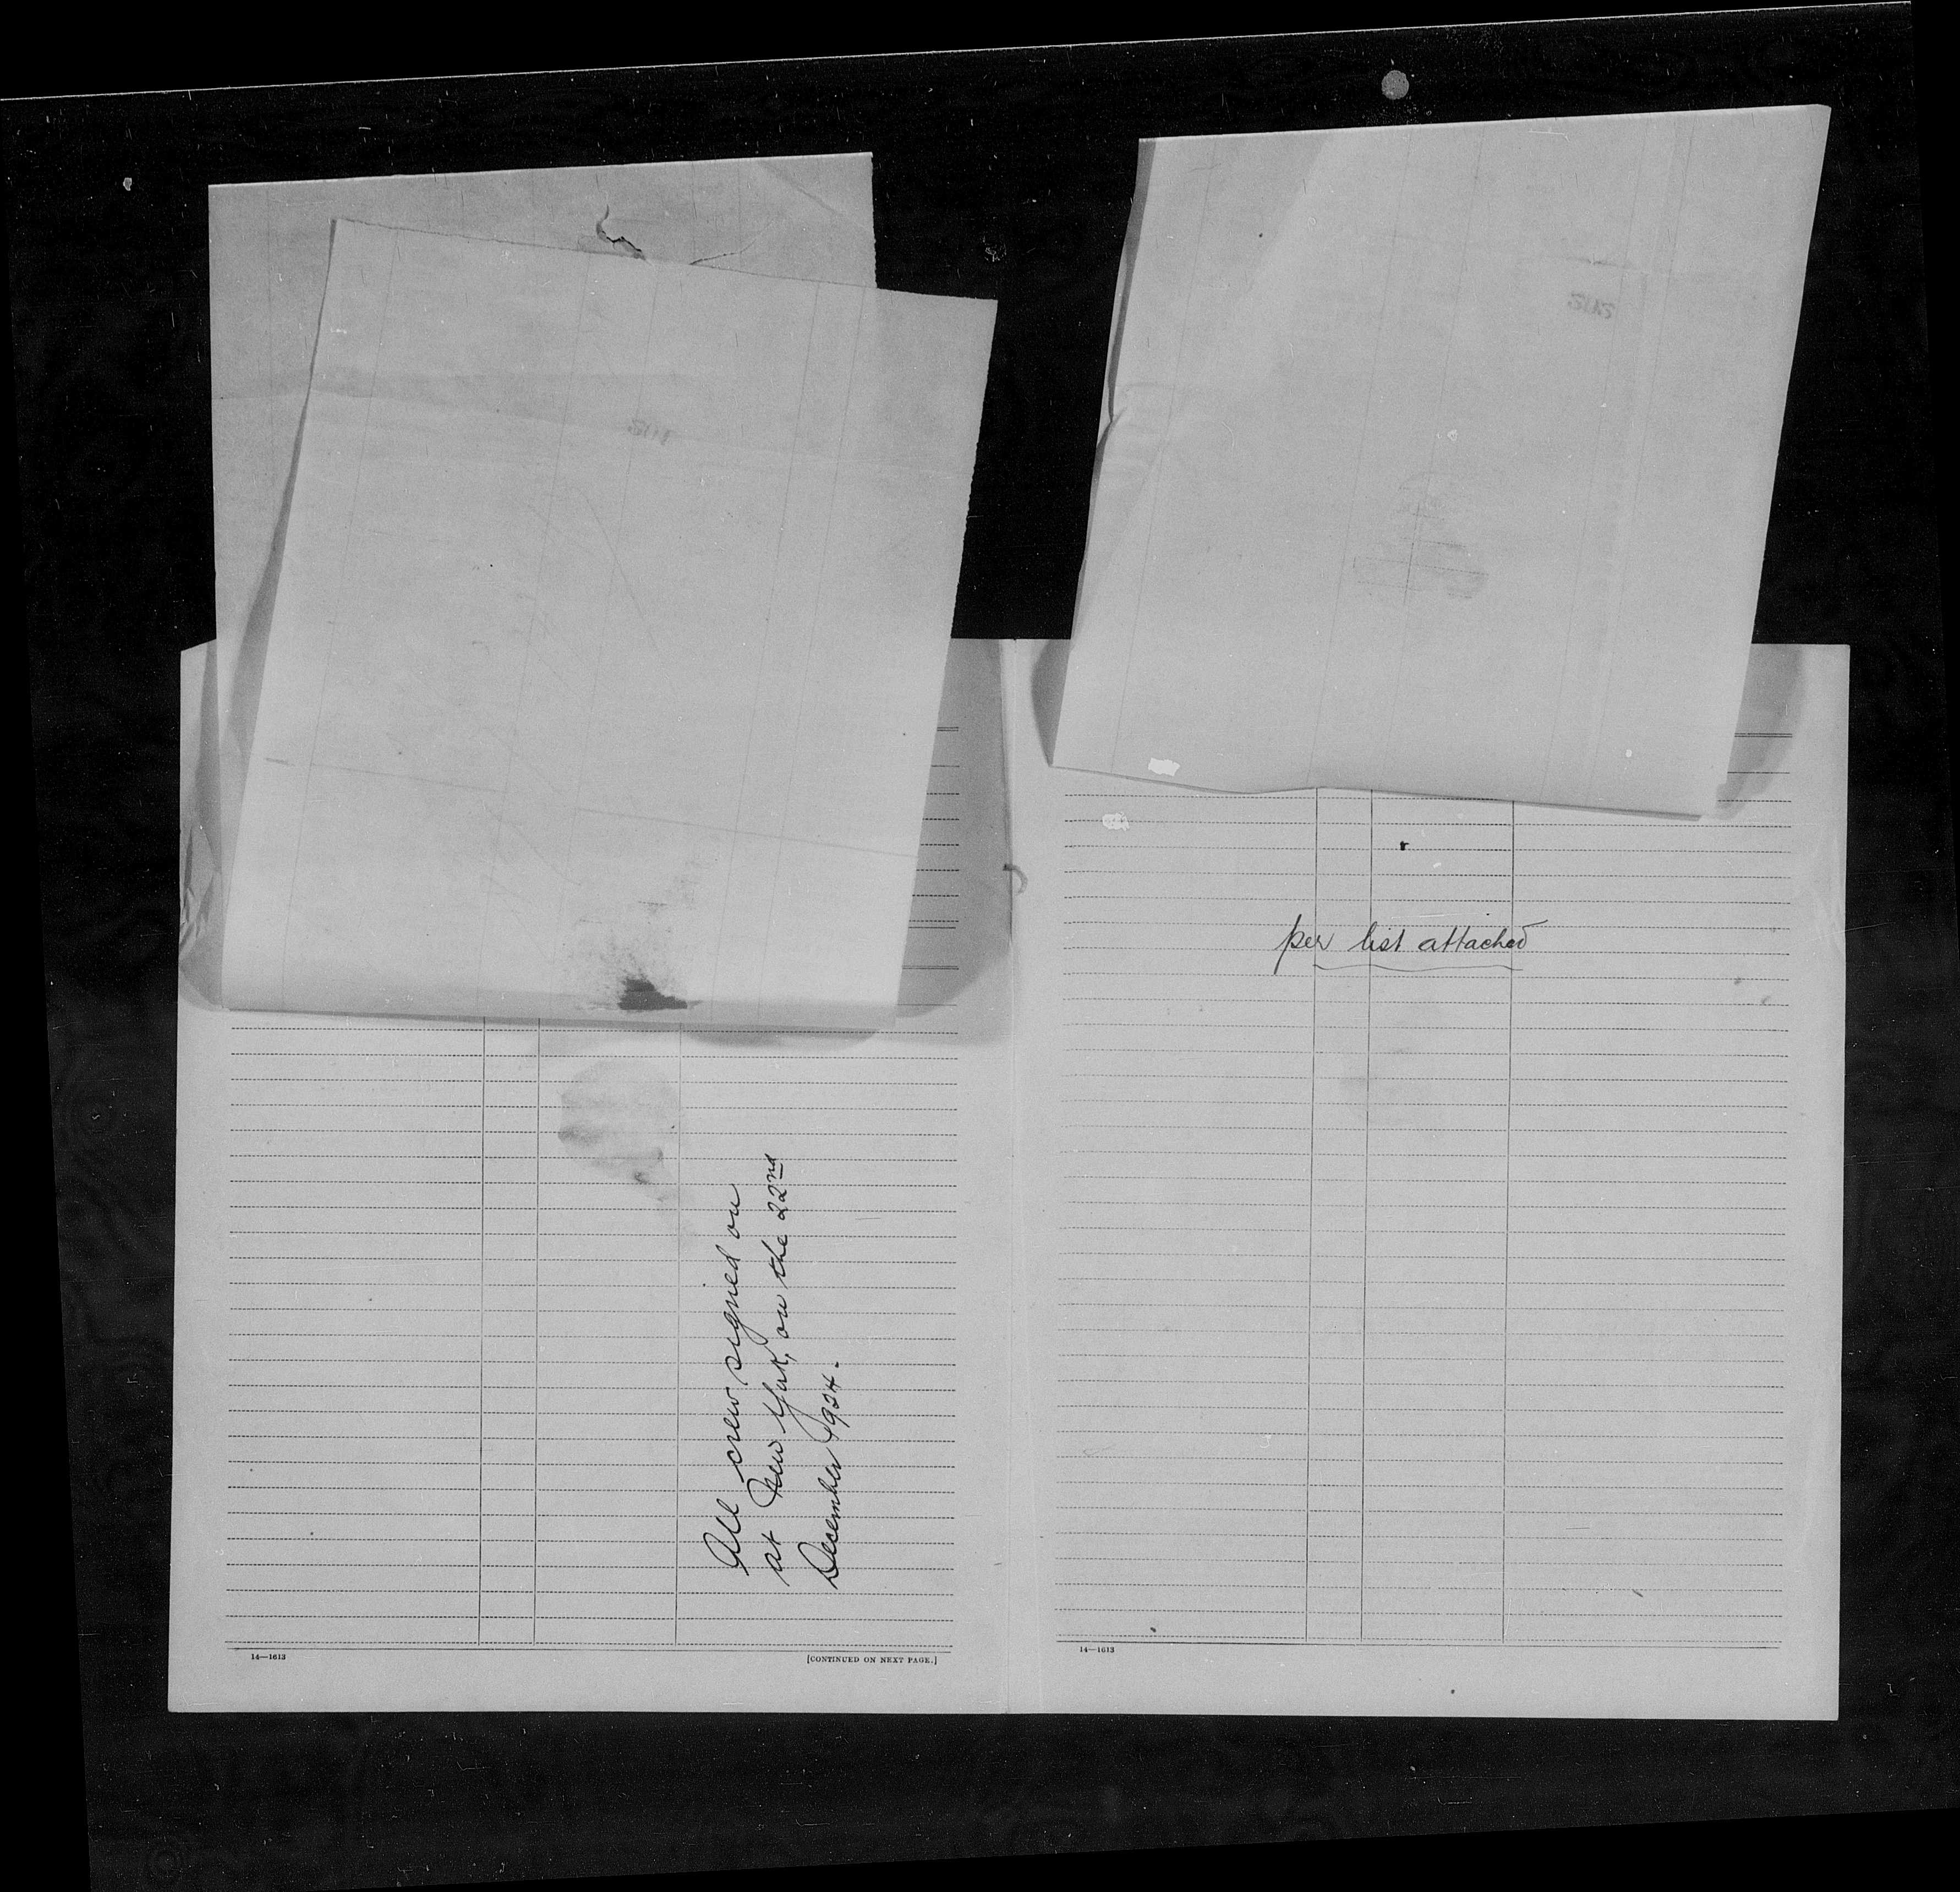 All crew signed on
at New York, on the 22nd
December 1934.
14—1613
[CONTINUED ON NEXT PAGE.]
per list attached
14—1613